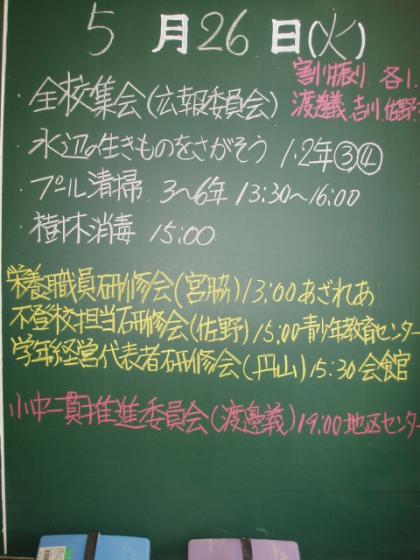 5月26日(火)
割り振り 各1.
渡邊義.吉川.佐野
・全校集会(広報委員会)
・水辺の生きものをさがそう 1.2年③④
・プール清掃 3~6年 13:30~16:00
・樹木消毒 15:00
栄養職員研修会(宮脇)13:00あざれあ
不登校担当研修会(佐野)15:00青少年教育センター
学年経営代表者研修会(丹山)15:30会館
小中一貫推進委員会(渡邊義)19:00地区センター